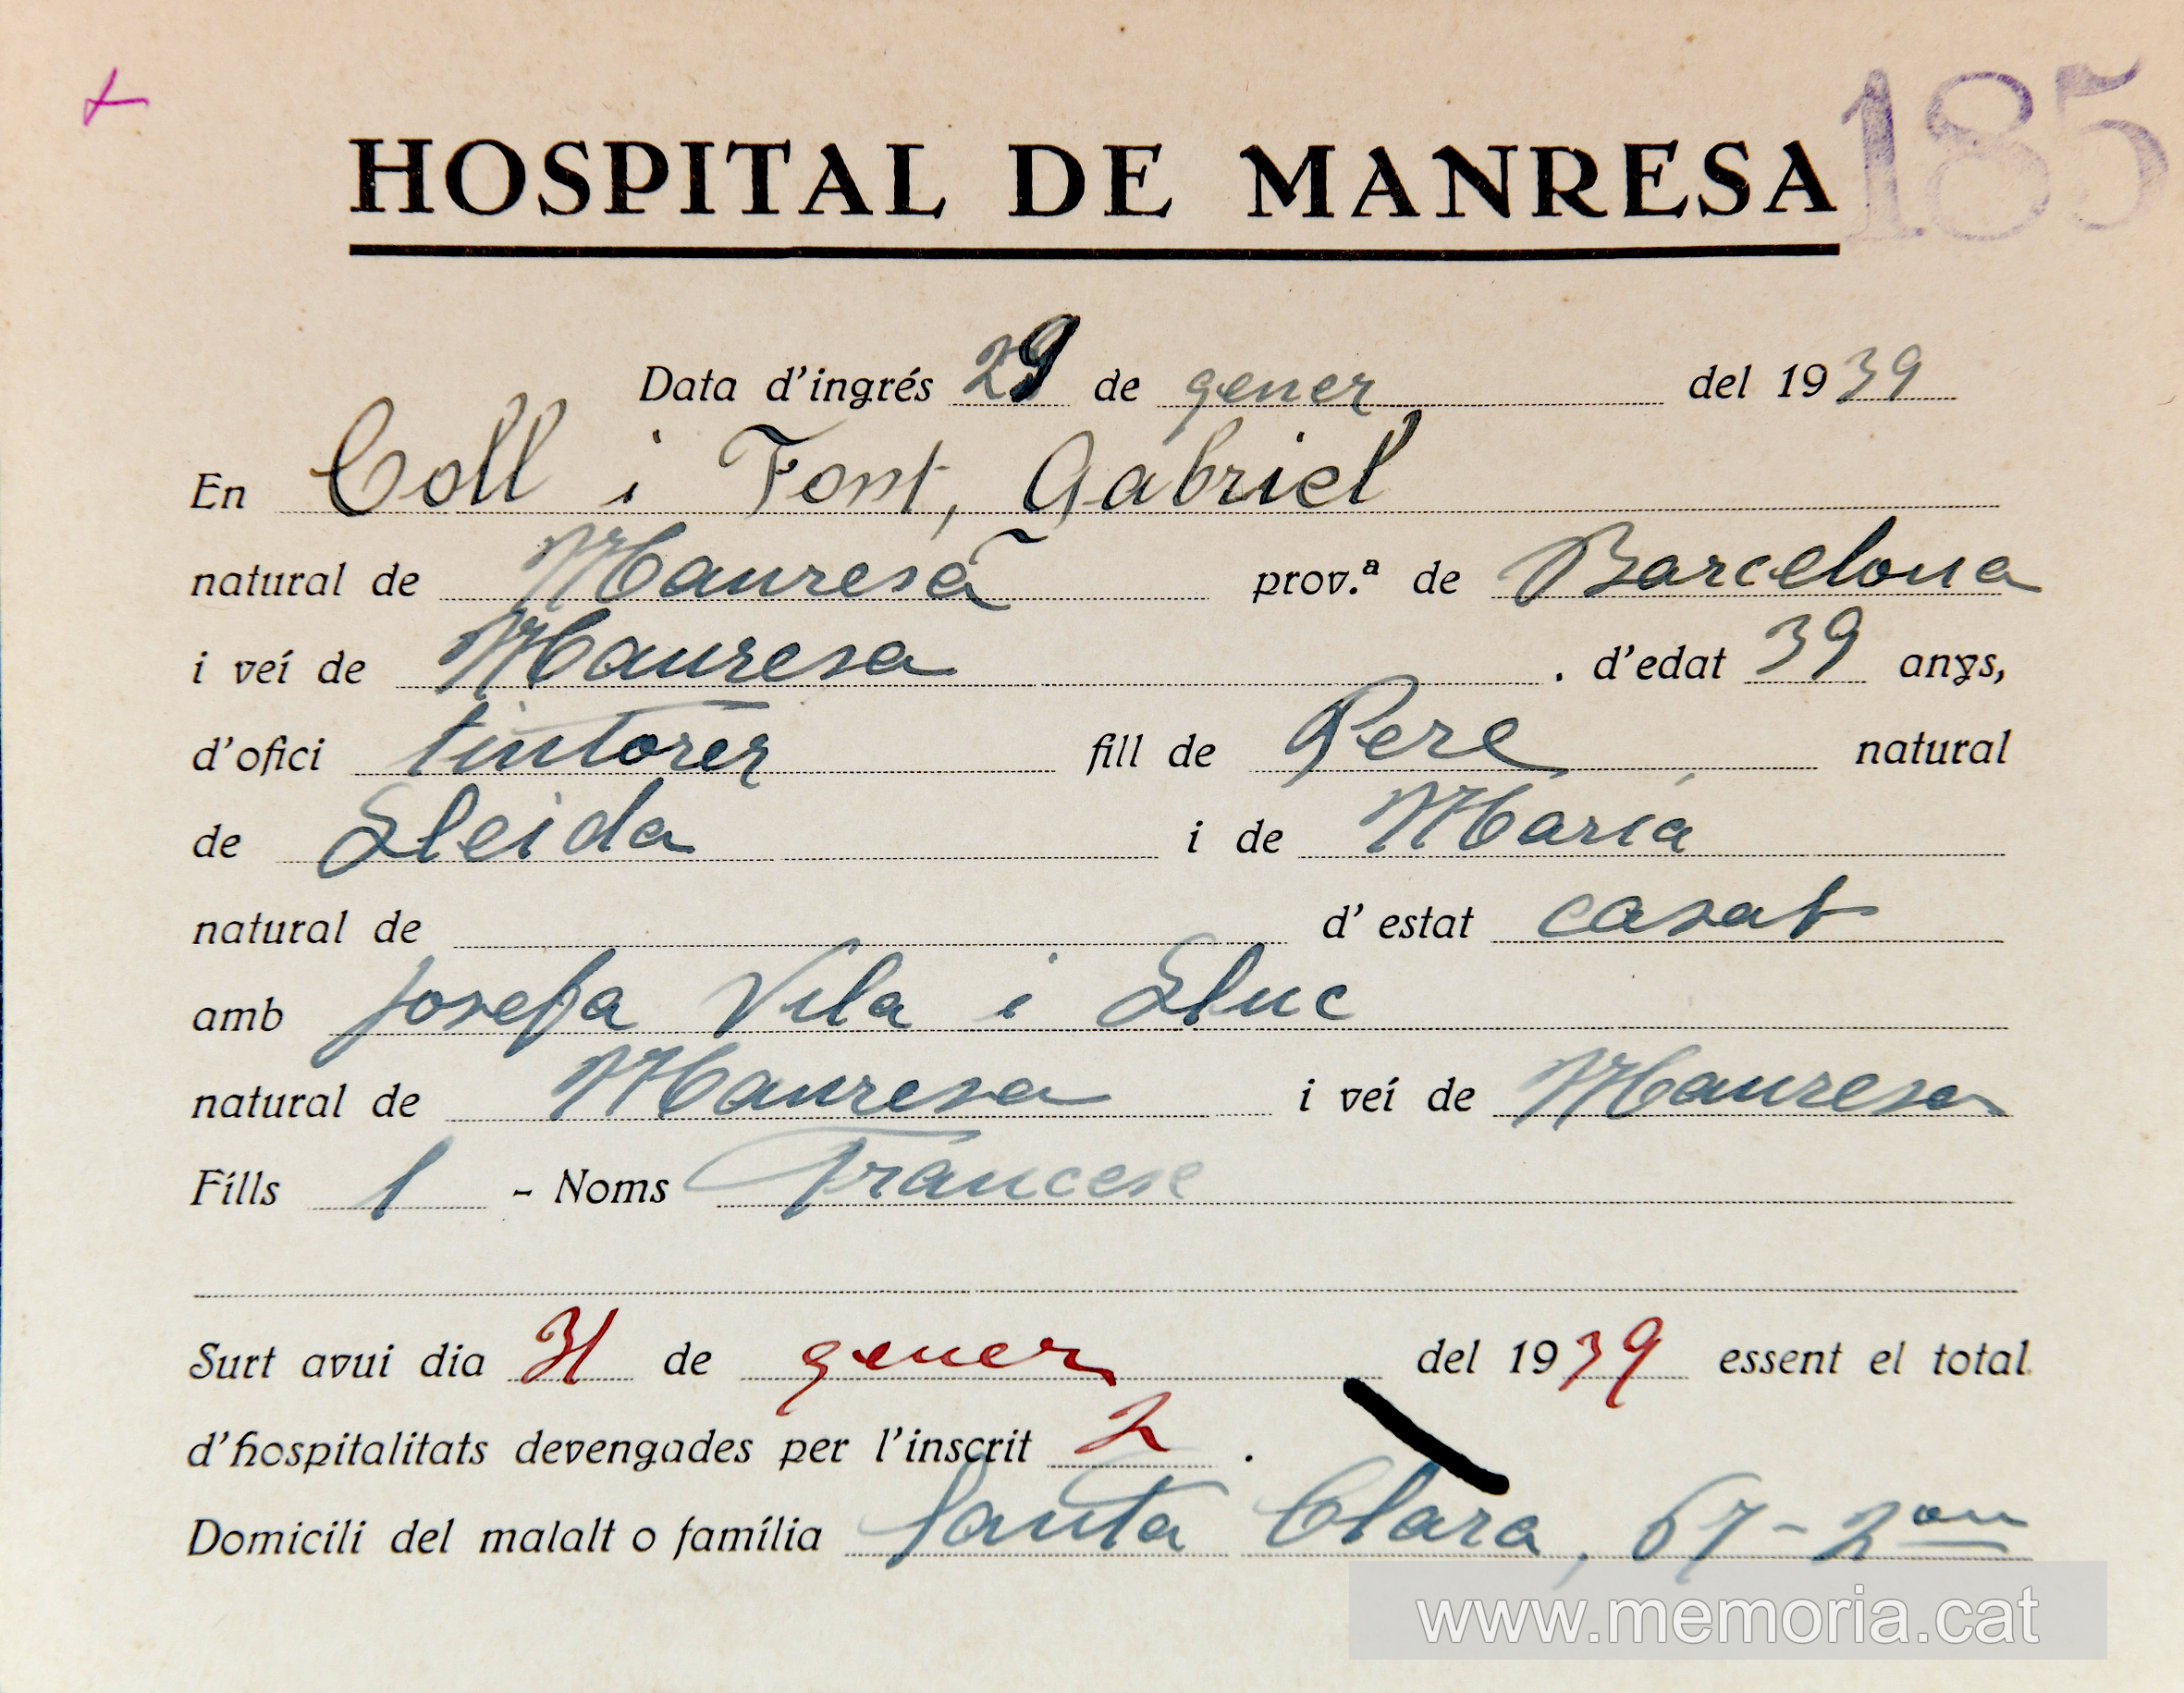 185
HOSPITAL DE MANRESA
Data d'ingrés 29 de gener del 1939
En Coll i Font, Gabriel
natural de Manresa prov.ª de Barcelona
i veí de Manresa . d'edat 39 anys,
d'ofici tintorer fill de Pere natural
de Lleida i de Maria
natural de d' estat casat
amb Josefa Vila i Lluc
natural de Manresa i veí de Manresa
Fills 1 - Noms Francesc
Surt avui dia 31 de gener del 1939 essent el total
d'hospitalitats devengades per l'inscrit 2 .
Domicili del malalt o família Santa Clara, 67-2on
www.memoria.cat